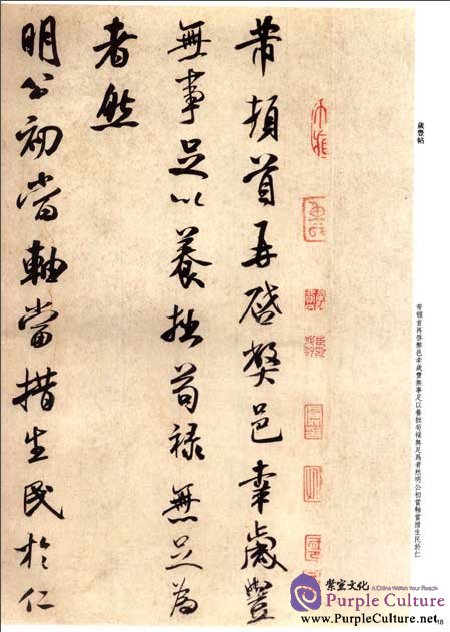 歲豐帖
芾頓首再啓弊邑幸歲豐無事足以養拙苟祿無足爲者然明公初當軸當措生民於仁
芾頓首再啓弊邑幸歲豐
無事足以養拙苟祿無足為
者然
明公初當軸當措生民於仁
文化 A China Within Your Reach
Purple Culture
www.PurpleCulture.net
18